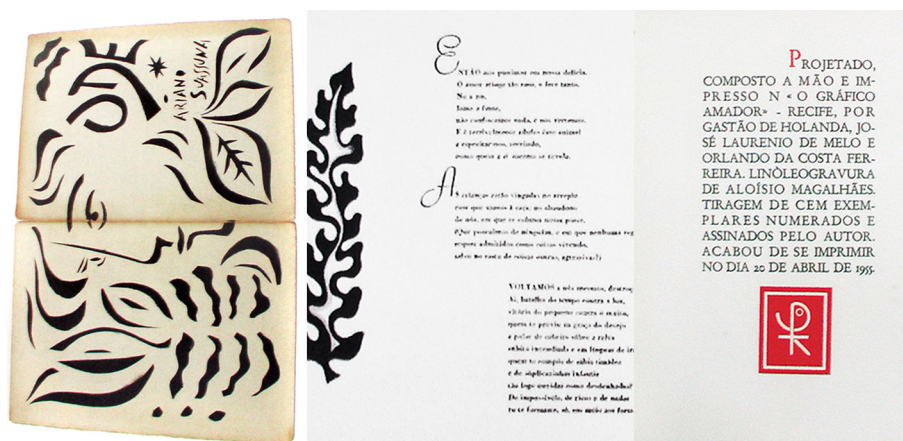 ODE
ARIANO
SUASSUNA
ENTÃO nos punimos em nossa delícia.
O amor atinge tão raso, e fere tanto.
Nu a nu,
fome a fome,
não confiscamos nada, e nos vertemos.
E é terrivelmente adulto esse animal
a espreitar-nos, sorrindo,
como quem a si mesmo se revela.
AS crianças estão vingadas no arrepio
com que vamos à caça; no abandono
de nós, em que se esfuma nossa posse.
(Que possuímos de ninguém, e em que nenhuma reg
sequer admitidos como coisas vivendo,
salvo no rasto de coisas outras, agressivas?)
VOLTAMOS a nós mesmos, destroç
Ai, batalha do tempo contra a luz,
vitória do pequeno contra o muito,
quem te previu na graça do desejo
a pular de cabrito sôbre a relva
súbito incendiada em línguas de ir
quem te compôs de sábia timidez
e de súplicazinhas infantis
tão logo ouvidas como desdenhadas?
De impossíveis, de risos e de nadas
tu te formaste, só, em meio aos forte
PROJETADO,
COMPOSTO A MÃO E IM-
PRESSO N «O GRÁFICO
AMADOR» - RECIFE, POR
GASTÃO DE HOLANDA, JO-
SÉ LAURENIO DE MELO E
ORLANDO DA COSTA FER-
REIRA. LINÓLEOGRAVURA
DE ALOÍSIO MAGALHÃES.
TIRAGEM DE CEM EXEM-
PLARES NUMERADOS E
ASSINADOS PELO AUTOR.
ACABOU DE SE IMPRIMIR
NO DIA 20 DE ABRIL DE 1955.